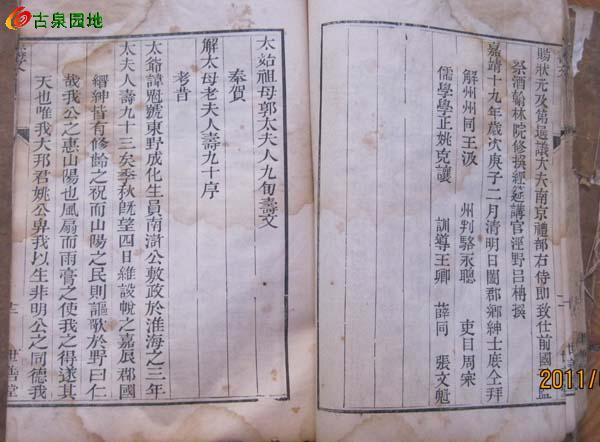 古泉园地
賜狀元及第通議大夫南京禮部右侍郎致仕前國
祭酒翰林院修撰經筵講官涇野呂柟撰
嘉靖十九年歲次庚子二月清明日闔郡鄉紳士庶仝拜
解州州同王汲 州判駱永聰 吏目周寀
儒學學正姚克讓 訓導王卿 薛同 張文魁
太始祖母郭太夫人九旬壽文
奉賀
解太母老夫人壽九十序
考昔
太爺諱冠號東野成化生員南滸公敷政於淮海之三年
太夫人壽九十三矣季秋旣望四日維設帨之嘉辰郡國
縉紳皆有修齡之祝而山陽之民則謳歌於野曰仁
哉我公之惠山陽也風扇而雨膏之使我之得遂其
天也唯我大邦君姚公畀我以生非明公之同德我
世岳堂
2011